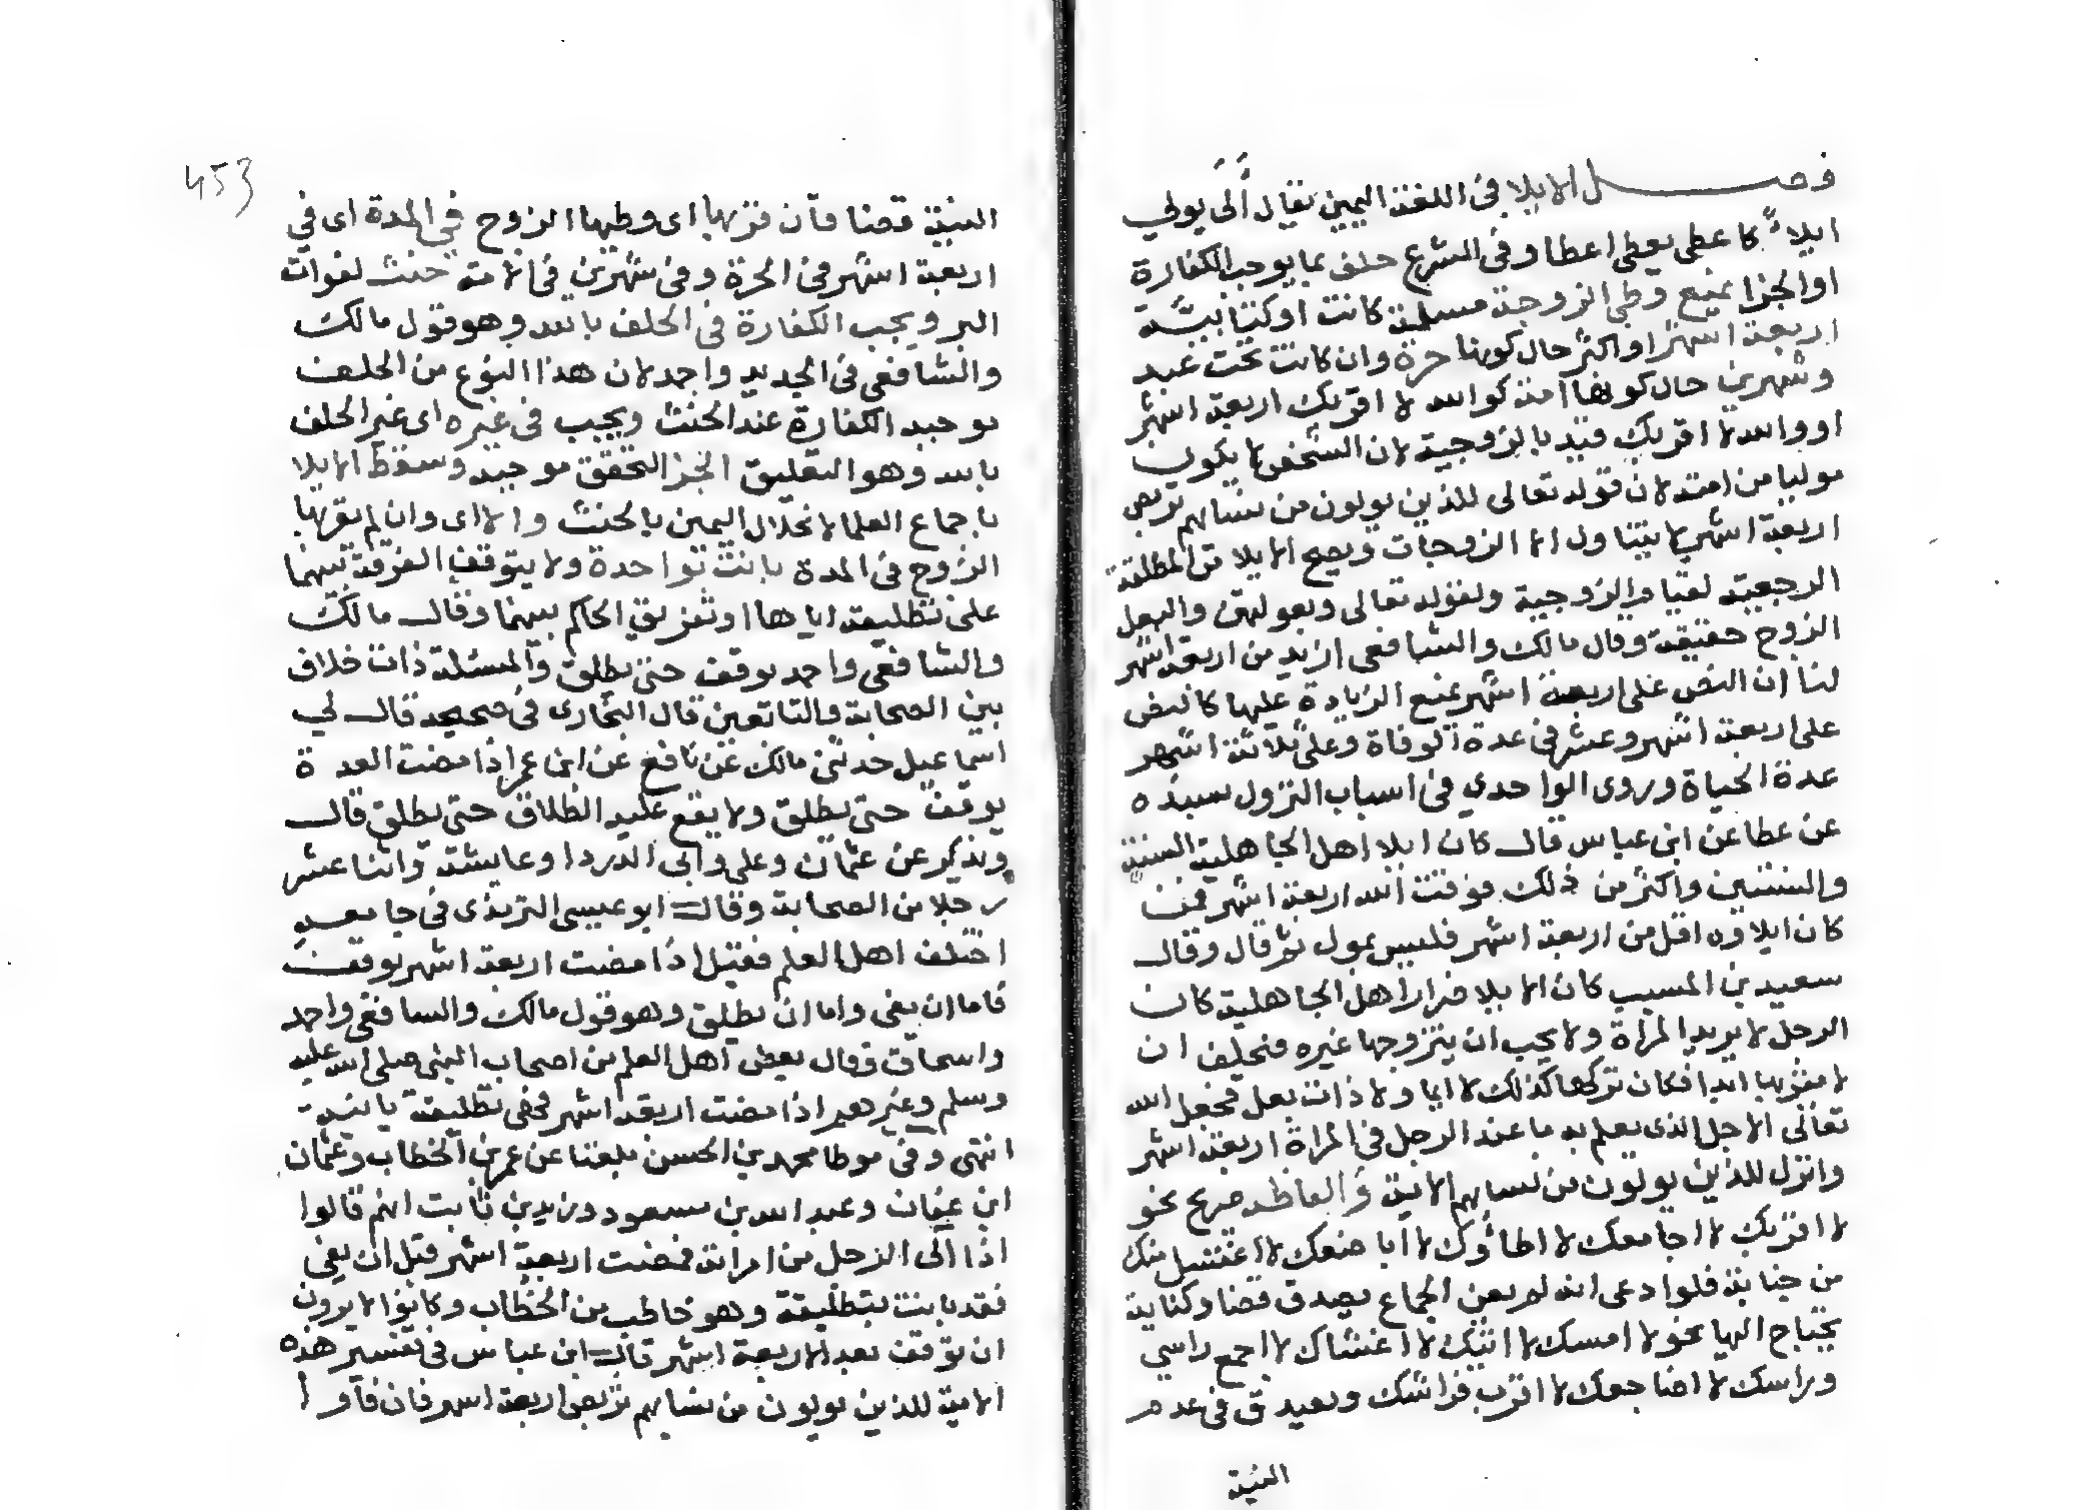 فصل الايلا في اللغة اليمين يقال آلى يولي
ايلاءً كاعطى يعطي اعطا وفي الشرع حلف بما يوجب الكفارة
اوالجزا يمنع وطي الزوجة مسلمة كانت اوكتابيّة
اربعة اشهرا واكثر حال كونها حرة وان كانت تحت عبد
وشهرين حال كونها امة كوالله لا اقربك اربعة اشهر
اووالله لا اقربك قيد بالزوجية لان الشخص لا يكون
موليا من امته لان قوله تعالى للذين يولون من نسايهم تربص
اربعة اشهر لا يتناول الا الزوجات ويصح الايلا من المطلقة
الرجعية لقيام الزوجية ولقوله تعالى وبعولتهن والبعل
الزوج حقيقة وقال مالك والشافعي ازيد من اربعة اشهر
لنا ان النص على اربعة اشهر يمنع الزيادة عليها كالنص
على اربعة اشهر وعشر في عدة الوفاة وعلى ثلاثة اشهر
عدة الحياة وروى الواحدي في اسباب النزول بسنده
عن عطا عن ابن عباس قال كان ايلا اهل الجاهلية السنة
والسنتين واكثر من ذلك فوقت الله اربعة اشهر فمن
كان ايلاوه اقل من اربعة اشهر فليس بمول ثم قال وقال
سعيد بن المسيب كان الايلا ضرار اهل الجاهلية كان
الرجل لا يريد المراة ولا يحب ان يتزوجها غيره فيحلف ان
لا يقربها ابدا فكان تركها كذلك لا ايما ولا ذات بعل فجعل الله
تعالى الاجل الذي يعلم به ما عند الرجل في المراة اربعة اشهر
وانزل للذين يولون من نسايهم الاية والفاظه صريح نحو
لا اقربك لا اجامعك لا اطاؤك لا اباضعك لا اغتسل منك
من جنابة فلوادعى انه لم يعن الجماع يصدق قضا وكناية
يحتاج اليها نحو لا امسك لا اتيك لا اغشاك لا اجمع راسي
وراسك لا اضاجعك لا اقرب فراشك ويصدق في عدم
النية
453
النية قضا فان قربها اى وطيها الزوج في المدة اى في
اربعة اشهر في الحرة وفي شهرين في الامة حنث لفوات
البر ويجب الكفارة في الحلف بالله وهو قول مالك
والشافعي في الجديد واحد لان هذا النوع من الحلف
موجبه الكفارة عند الحنث ويجب في غيره اى غير الحلف
بالله وهو التعليق الجزا لتحقق موجبه وسقط الايلا
باجماع العلما لانحلال اليمين بالحنث والا اى وان لم يقربها
الزوج في المدة بانت بواحدة ولا يتوقف الفرقة بينهما
على تطليقه اياها اوتفريق الحاكم بينهما وقال مالك
والشافعي واحد يوقف حتى يطلق والمسئلة ذات خلاف
بين الصحابة والتابعين قال البخارى في صحيحه قال لي
اسماعيل حدثني مالك عن نافع عن ابن عمر اذا مضت العدة
يوقف حتى يطلق ولا يقع عليه الطلاق حتى يطلق قال
ويذكر عن عثمان وعلي وابي الدردا وعايشة واثنا عشر
رجلا من الصحابة وقال ابو عيسى الترمذى في جامعه
اختلف اهل العلم فقيل اذا مضت اربعة اشهر يوقف
فاما ان يفي واما ان يطلق وهو قول مالك والشافعي واحمد
واسحاق وقال بعض اهل العلم من اصحاب النبي صلى الله عليه
وسلم وغيرهم اذا مضت اربعة اشهر فهي تطليقة باينة
انتهى وفي موطا محمد بن الحسن بلغنا عن عمر بن الخطاب وعثمان
ابن عفان وعبد الله بن مسعود وزيد بن ثابت انهم قالوا
اذا آلى الرجل من امراته فمضت اربعة اشهر قبل ان يفي
فقد بانت بتطليقة وهو خاطب من الخطاب وكانوا لا يرون
ان يوقف بعد الاربعة اشهر قال ابن عباس في تفسير هذه
الاية للذين يولون من نسايهم تربص اربعة اشهر فان فاوا